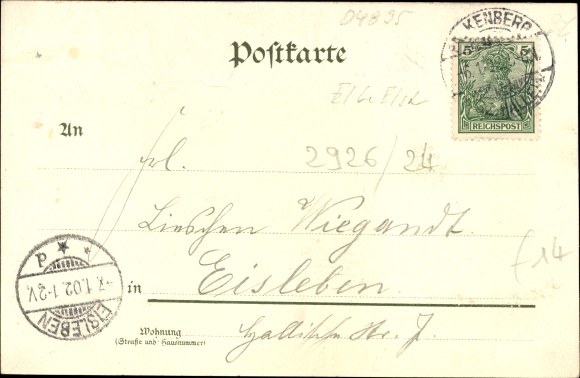 D4895
KENBERG
5 5
REICHSPOST
Postkarte
An
Frl.
2926/24
Lieschen Wiegandt.
Eisleben.
in
f 14
EISLEBEN
7.1.02.1-2V.
Wohnung
(Straße und Hausnummer)
Hallische Str. 7.